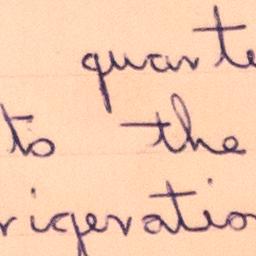 quarte
to the
rigeration